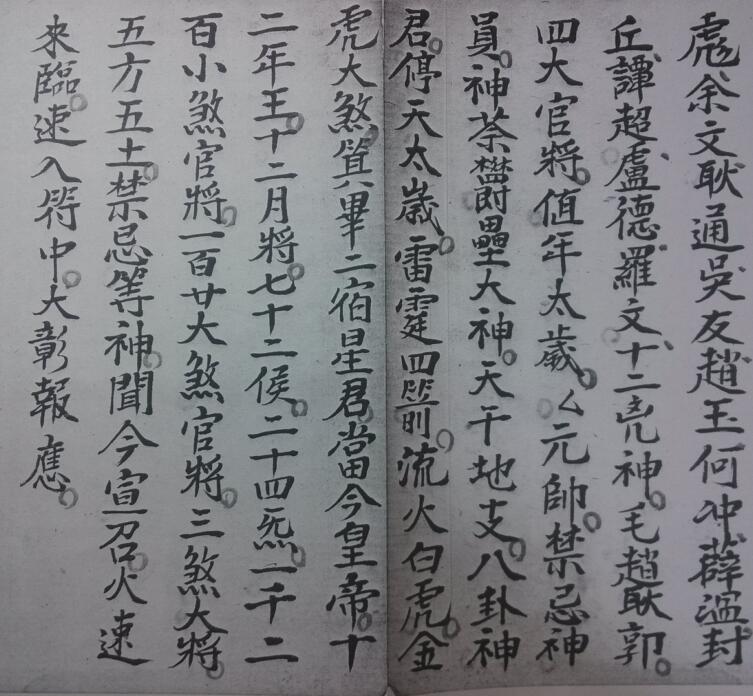 彪余文耿通吳友趙玉何冲薜溫封
丘譚超盧德羅文十二𠒋神毛趙耿郭。
四大官將。值年太歲。厶元帥。禁忌神
員。神荼欝壘大神。天干地支。八卦神
君。停天太歲。雷霆四箭。流火白虎。金
虎大煞。箕畢二宿星君。當今皇帝。十
二年王。十二月將。七十二侯。二十四炁。一千二
百小煞官將。一百廿大煞官將。三煞大將。
五方五土。禁忌等神。聞今宣召。火速
來臨。速入符中。大彰報應。